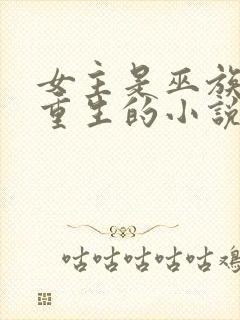 女主是巫族
重生的小說
咕咕咕咕咕雞